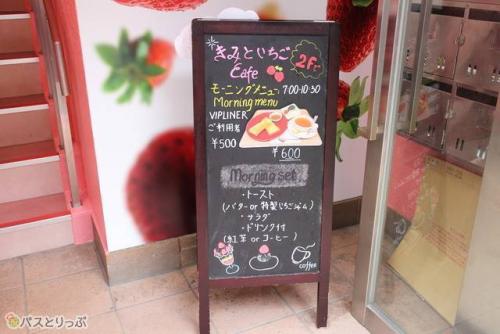 きみといちご
Cafe
2F
モーニングメニュー 7:00-10:30
Morning menu
VIPLINER
ご利用者
¥500
¥600
Morning set
・トースト
(バター or 特製いちごジャム)
・サラダ
・ドリンク付
(紅茶 or コーヒー)
coffee
バスとりっぷ